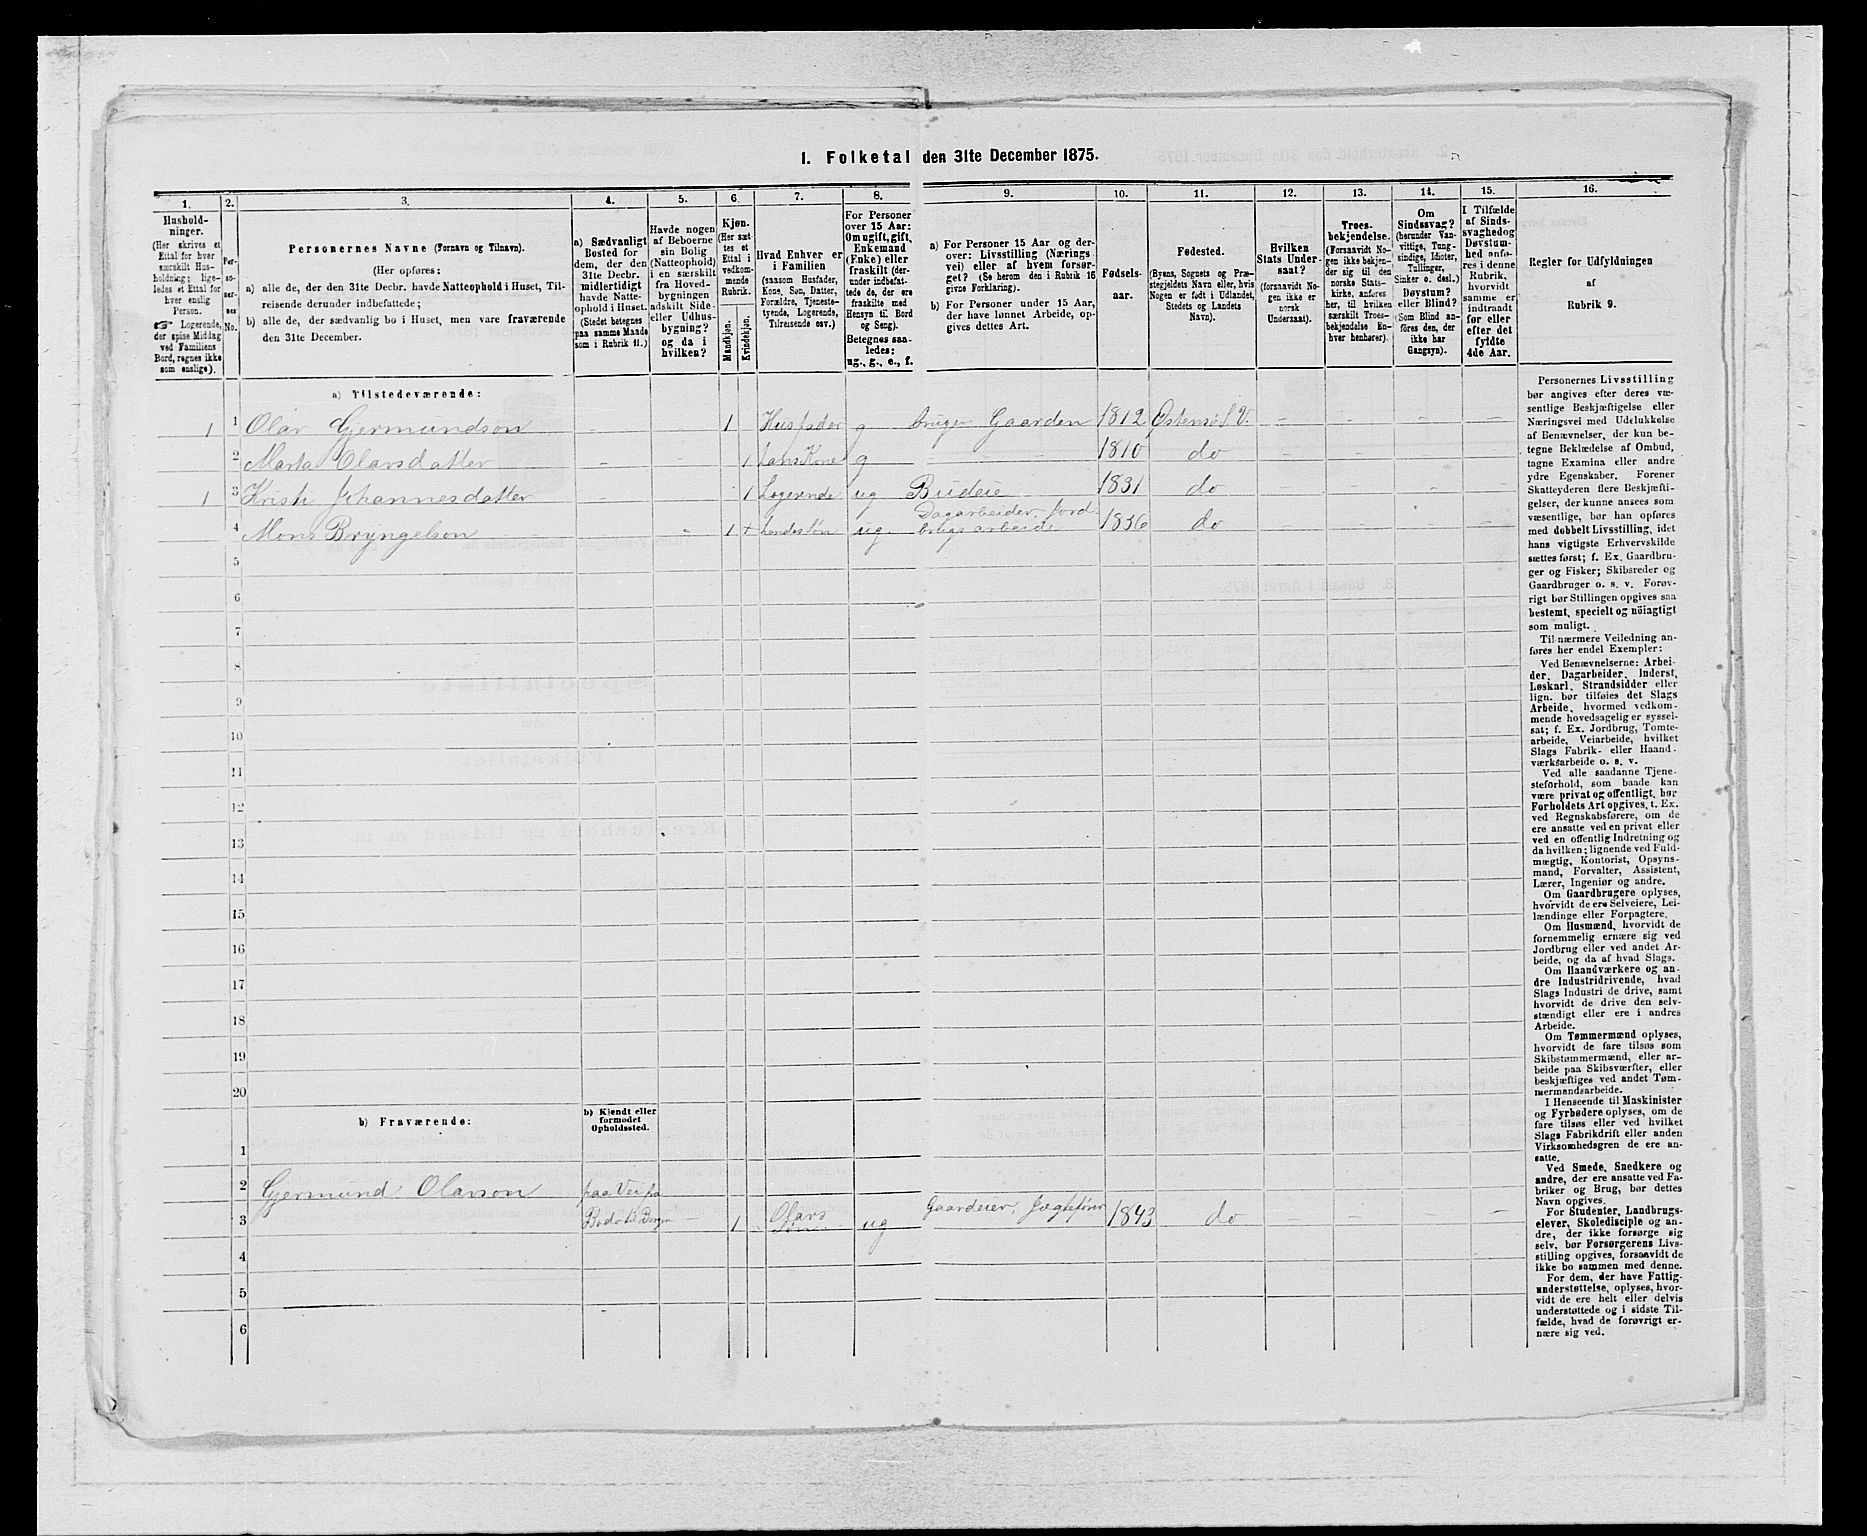 I. Folketal den 31te December 1875.
1. 2. 3. 4. 5. 6. 7. 8. 9. 10. 11. 12. 13. 14. 15. 16.
Hushold-
ninger.
(Her skrives et
Ettal for hver
særskilt Hus-
holdning; lige-
ledes et Ettal for
hver enslig
Person.
☞ Logerende,
der spise Middag
ved Familiens
Bord, regnes ikke
som enslige).
Per-
so-
ner-
nes
No.
Personernes Navne (Fornavn og Tilnavn).
(Her opføres:
a) alle de, der den 31te Decbr. havde Natteophold i Huset, Til-
reisende derunder indbefattede;
b) alle de, der sædvanlig bo i Huset, men vare fraværende
den 31te December.
a) Sædvanligt
Bosted for
dem, der den
31te Decbr.
midlertidigt
havde Natte-
ophold i Huset.
(Stedet betegnes
paa samme Maade
som i Rubrik 11.)
Havde nogen
af Beboerne
sin Bolig
(Natteophold)
i en særskilt
fra Hoved-
bygningen
adskilt Side-
eller Udhus-
bygning?
og da i
hvilken?
Kjøn.
(Her sæt-
tes et
Ettal i
vedkom-
mende
Rubrik.
Mandkjøn.
Kvindekjøn.
Hvad Enhver er
i Familien
(saasom Husfader,
Kone, Søn, Datter,
Forældre, Tjeneste-
tyende, Logerende,
Tilreisende osv.)
For Personer
over 15 Aar:
Om ugift, gift,
Enkemand
(Enke) eller
fraskilt (der-
under indbefat-
tede de, der ere
fraskilte med
Hensyn til Bord
og Seng).
Betegnes saa-
ledes:
ug., g., e., f.
a) For Personer 15 Aar og der-
over: Livsstilling (Nærings-
vei) eller af hvem forsør-
get? (Se herom den i Rubrik 16
givne Forklaring).
b) For Personer under 15 Aar,
der have lønnet Arbeide, op-
gives dettes Art.
Fødsels-
aar.
Fødested.
(Byens, Sognets og Præ-
stegjeldets Navn eller, hvis
Nogen er født i Udlandet,
Stedets og Landets
Navn).
Hvilken
Stats Under-
saat?
(forsaavidt No-
gen ikke er
norsk
Undersaat).
Troes-
bekjendelse.
(Forsaavidt No-
gen ikke bekjen-
der sig til den
norske Stats-
kirke, anføres
her, til hvilken
særskilt Troes-
bekjendelse En-
hver henhører).
Om
Sindssvag?
(herunder Van-
vittige, Tung-
sindige, Idioter,
Tullinger,
Sinker o. desl.)
Døvstum?
eller Blind?
(Som Blind an-
føres den, der
ikke har
Gangsyn).
I Tilfælde
af Sinds-
svaghed og
Døvstum-
hed anfø-
res i denne
Rubrik,
hvorvidt
samme er
indtraadt
før eller
efter det
fyldte
4de Aar.
Regler for Udfyldningen
af
Rubrik 9.
a) Tilstedeværende:
1 1 Olav Gjermundson - - 1 Husfader g bruger Gaarden 1812 Østensø S. V. - - - -
2 Marta Olavsdatter - - 1 hans Kone g - - - 1810 do - - - -
1 3 Kristi Johannesdatter - 1 Logerende ug Budeie 1831 do - - - -
4 Mons Bryngelson - 1 + ug. Dagarbeider, Jord-
brugsarbeide 1836 do - - - -
5
6
7
8
9
10
11
12
13
14
15
16
17
18
19
20
b) Fraværende:
b) Kjendt eller
formodet
Opholdssted.
1
2 Gjermund Olavson paa Vei fra
3 Bodø til Bergen - 1 - Olavs
Søn ug Gaardeier, Jægtefører 1843 do - - - -
4
5
6
Personernes Livsstilling
bør angives efter deres væ-
sentlige Beskjæftigelse eller
Næringsvei med Udelukkelse
af Benævnelser, der kun be-
tegne Beklædelse af Ombud,
tagne Examina eller andre
ydre Egenskaber. Forener
Skatteyderen flere Beskjæfti-
gelser, der kunne ansees som
væsentlige, bør han opføres
med dobbelt Livsstilling, idet
hans vigtigste Erhvervskilde
sættes først; f. Ex. Gaardbru-
ger og Fisker; Skibsreder og
Gaardbruger o. s. v. Forøv-
rigt bør Stillingen opgives saa
bestemt, specielt og nöiagtigt
som muligt.
Til nærmere Veiledning an-
føres her endel Exempler:
Ved Benævnelserne: Arbei-
der, Dagarbeider, Inderst,
Løskarl, Strandsidder eller
lign. bør tilføies det Slags
Arbeide, hvormed vedkom-
mende hovedsagelig er syssel-
sat; f. Ex. Jordbrug, Tomte-
arbeide, Veiarbeide, hvilket
Slags Fabrik- eller Haand-
værksarbeide o. s. v.
Ved alle saadanne Tjene-
steforhold, som baade kan
være privat og offentligt, bør
Forholdets Art opgives, t. Ex.
ved Regnskabsførere, om de
ere ansatte ved en privat eller
ved en offentlig Indretning og
da hvilken; lignende ved Fuld-
mægtig, Kontorist, Opsyns-
mand, Forvalter, Assistent,
Lærer, Ingeniør og andre.
Om Gaardbrugere oplyses,
hvorvidt de ere Selveiere, Lei-
lændinge eller Forpagtere.
Om Husmænd, hvorvidt de
fornemmelig ernære sig ved
Jordbrug eller ved andet Ar-
beide, og da af hvad Slags.
Om Haandværkere og an-
dre Industridrivende, hvad
Slags Industri de drive, samt
hvorvidt de drive den selv-
stændigt eller ere i andres
Arbeide.
Om Tømmermænd oplyses,
hvorvidt de fare tilsøs som
Skibstømmermænd, eller ar-
beide paa Skibsværfter, eller
beskjæftiges ved andet Tøm-
mermandsarbeide.
I Henseende til Maskinister
og Fyrbødere oplyses, om de
fare tilsøs eller ved hvilket
Slags Fabrikdrift eller anden
Virksomhedsgren de ere an-
satte.
Ved Smede, Snedkere og
andre, der ere ansatte ved Fa-
briker og Brug, bør dettes
Navn opgives.
For Studenter, Landbrugs-
elever, Skoledisciple og an-
dre, der ikke forsørge sig
selv, bør Forsørgerens Livs-
stilling opgives, forsaavidt de
ikke bo sammen med denne.
For dem, der have Fattig-
understøttelse, oplyses, hvor-
vidt de ere helt eller delvis
understøttede og i sidste Til-
fælde, hvad de forøvrigt er-
nære sig ved.